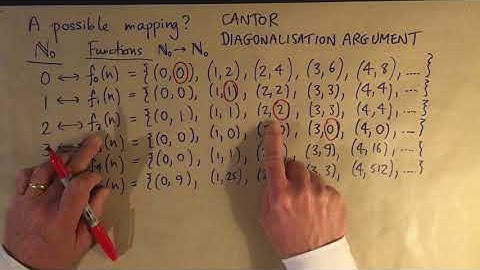 A possible mapping? CANTOR
DIAGONALISATION ARGUMENT
ℕ₀ Functions ℕ₀→ℕ₀
0 ↔ f₀(n) = {(0,0), (1,2), (2,4), (3,6), (4,8), ....}
1 ↔ f₁(n) = {(0,0), (1,1), (2,2), (3,3), (4,4), ....}
2 ↔ f₂(n) = {(0,1), (1,1), (2,2), (3,3), (4,4), ....}
3 ↔ (n) = {(0,0), (1,0), (3,0), (4,0), ....}
(n) = {(0,0), (1,1), (3,9), (4,16), ....}
(n) = {(0,9), (1,25), (3,3), (4,512), ....}